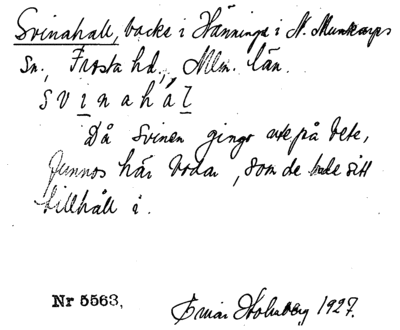 Svinahall, backe i Hänninge i N. Munkarps
Sn., Frosta hd., Mlm. län.
svinahál
Då svinen gingo ute på bete,
funnos här bodar, som de hade sitt
tillhåll i.
Nr 5563. Einar Holmberg 1927.